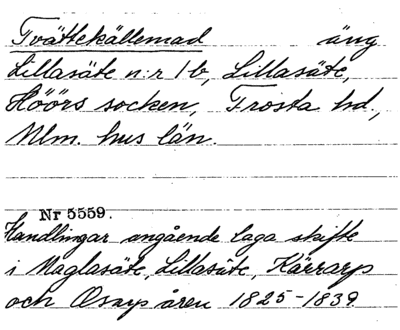 Tvättekällemad äng
Lillasäte n:r 1 b, Lillasäte,
Höörs socken, Frosta hd.,
Mlm. hus län.
Nr 5559.
Handlingar angående laga skifte
i Maglasäte, Lillasäte, Kärrarp
och Osarp åren 1825-1839.